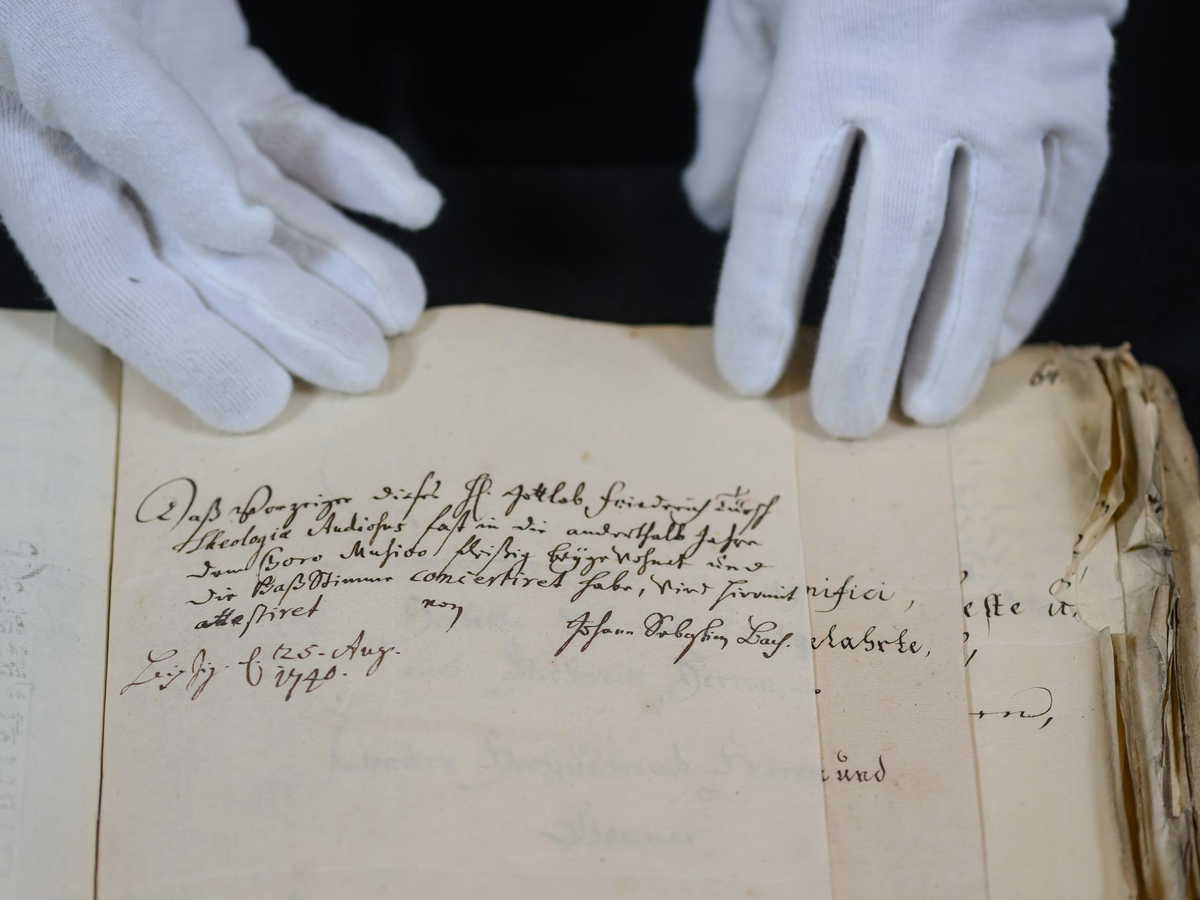 64
Daß Vorzeiger dieses H. Gottlob Friedrich Türck
Theologiæ Studiosus fast in die anderthalb Jahre
dem Choro Musico fleißig beygewohnet und
die Baß Stimme concertiret habe, wird hiermit
attestiret von
Johann Sebastian Bach.
Leipzig. d. 25. Aug.
1740.
nifici,
este
und